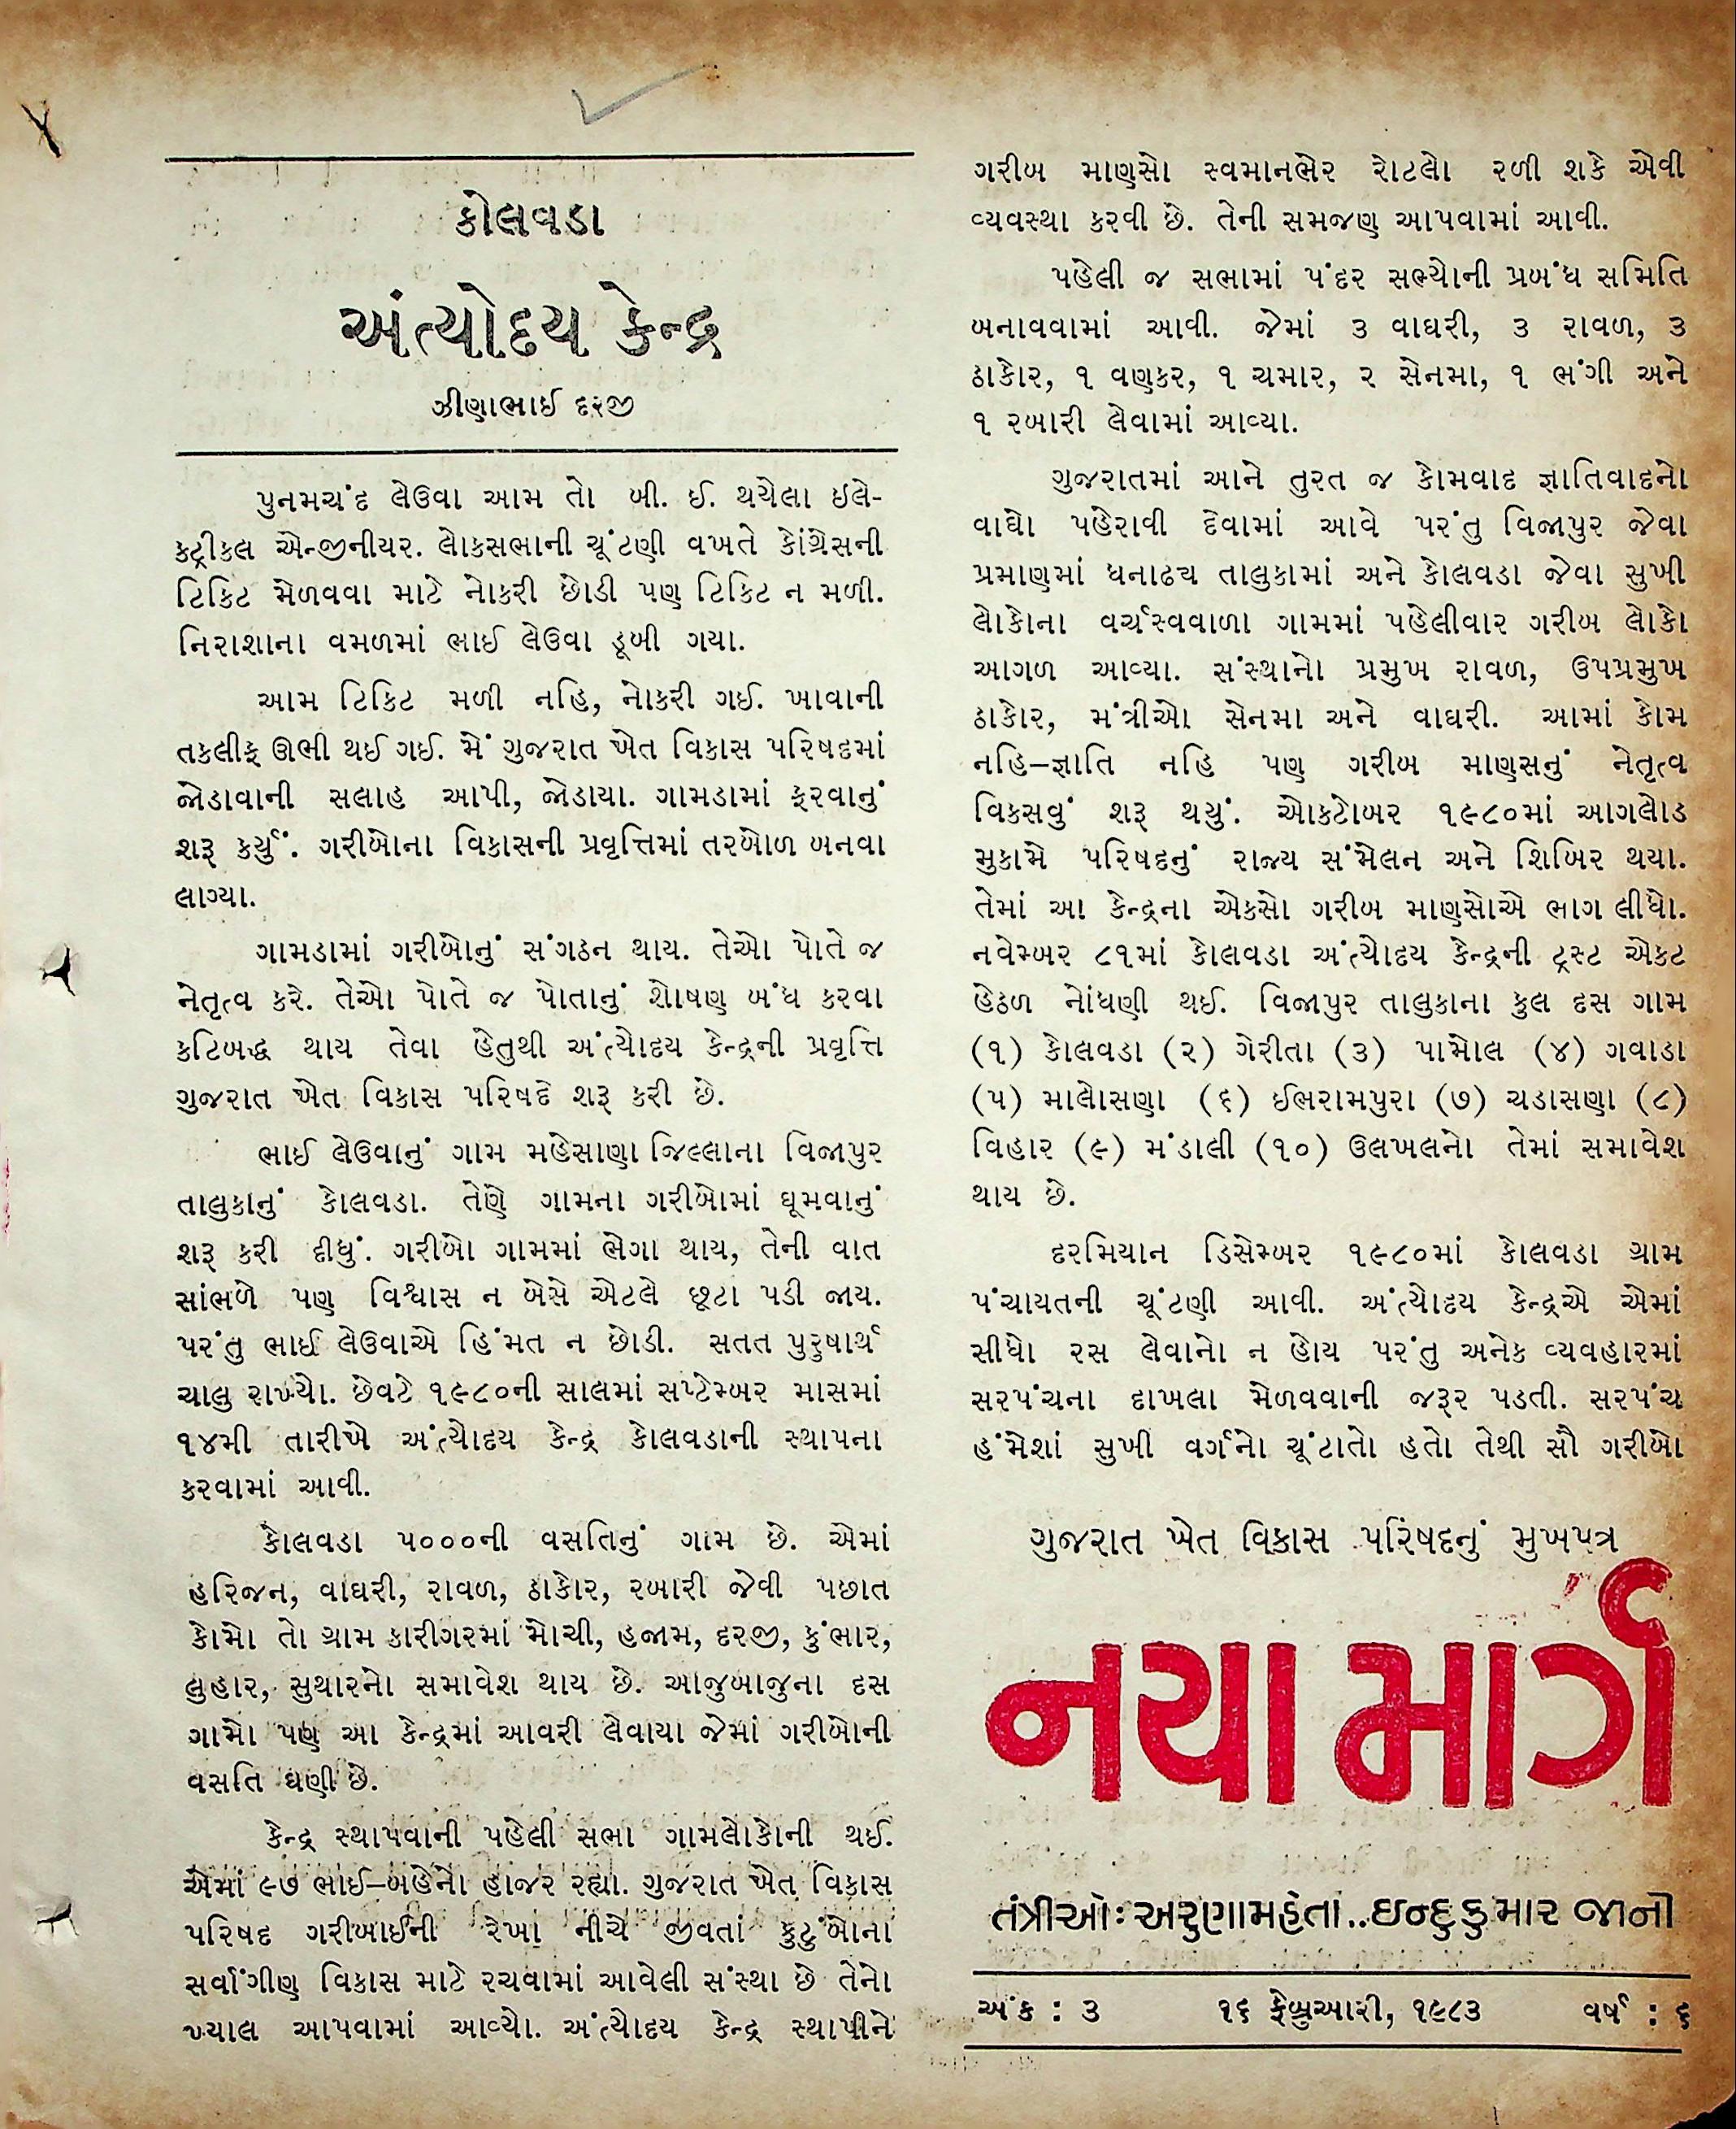 કોલવડા
અંત્યોદય કેન્દ્ર
ઝીણાભાઈ દરજી
પુનમચંદ લેઉવા આમ તો બી. ઈ. થયેલા ઇલે-
કટ્રીકલ એન્જીનીયર. લોકસભાની ચૂંટણી વખતે કોંગ્રેસની
ટિકિટ મેળવવા માટે નોકરી છોડી પણ ટિકિટ ન મળી.
નિરાશાના વમળમાં ભાઈ લેઉવા ડૂબી ગયા.
આમ ટિકિટ મળી નહિ, નોકરી ગઈ. ખાવાની
તકલીફ ઊભી થઈ ગઈ. મેં ગુજરાત ખેત વિકાસ પરિષદમાં
જોડાવાની સલાહ આપી, જોડાયા. ગામડામાં ફરવાનું
શરૂ કર્યું. ગરીબોના વિકાસની પ્રવૃત્તિમાં તરબોળ બનવા
લાગ્યા.
ગામડામાં ગરીબોનું સંગઠન થાય. તેઓ પોતે જ
નેતૃત્વ કરે. તેઓ પોતે જ પોતાનું શોષણ બંધ કરવા
કટિબદ્ધ થાય તેવા હેતુથી અંત્યોદય કેન્દ્રની પ્રવૃત્તિ
ગુજરાત ખેત વિકાસ પરિષદે શરૂ કરી છે.
ભાઈ લેઉવાનું ગામ મહેસાણા જિલ્લાના વિજાપુર
તાલુકાનું કોલવડા. તેણે ગામના ગરીબોમાં ઘૂમવાનું
શરૂ કરી દીધું. ગરીબો ગામમાં ભેગા થાય, તેની વાત
સાંભળે પણ વિશ્વાસ ન બેસે એટલે છૂટા પડી જાય.
પરંતુ ભાઈ લેઉવાએ હિંમત ન છોડી. સતત પુરુષાર્થ
ચાલુ રાખ્યો. છેવટે ૧૯૮૦ની સાલમાં સપ્ટેમ્બર માસમાં
૧૪મી તારીખે અંત્યોદય કેન્દ્ર કોલવડાની સ્થાપના
કરવામાં આવી.
કોલવડા ૫૦૦૦ની વસતિનું ગામ છે. એમાં
હરિજન, વાઘરી, રાવળ, ઠાકોર, રબારી જેવી પછાત
કોમો તો ગ્રામ કારીગરમાં મોચી, હજામ, દરજી, કુંભાર,
લુહાર, સુથારનો સમાવેશ થાય છે. આજુબાજુના દસ
ગામો પણ આ કેન્દ્રમાં આવરી લેવાયા જેમાં ગરીબોની
વસતિ ઘણી છે.
કેન્દ્ર સ્થાપવાની પહેલી સભા ગામલોકોની થઈ.
એમાં ૯૭ ભાઈ–બહેનો હાજર રહ્યા. ગુજરાત ખેત વિકાસ
પરિષદ ગરીબાઈની રેખા નીચે જીવતાં કુટુંબોના
સર્વાંગીણ વિકાસ માટે રચવામાં આવેલી સંસ્થા છે તેનો
ખ્યાલ આપવામાં આવ્યો. અંત્યોદય કેન્દ્ર સ્થાપીને
ગરીબ માણસો સ્વમાનભેર રોટલો રળી શકે એવી
વ્યવસ્થા કરવી છે. તેની સમજણ આપવામાં આવી.
પહેલી જ સભામાં પંદર સભ્યોની પ્રબંધ સમિતિ
બનાવવામાં આવી. જેમાં ૩ વાઘરી, ૩ રાવળ, ૩
ઠાકોર, ૧ વણકર, ૧ ચમાર, ૨ સેનમા, ૧ ભંગી અને
૧ રબારી લેવામાં આવ્યા.
ગુજરાતમાં આને તુરત જ કોમવાદ જ્ઞાતિવાદનો
વાઘો પહેરાવી દેવામાં આવે પરંતુ વિજાપુર જેવા
પ્રમાણમાં ધનાઢય તાલુકામાં અને કોલવડા જેવા સુખી
લોકોના વર્ચસ્વવાળા ગામમાં પહેલીવાર ગરીબ લોકો
આગળ આવ્યા. સંસ્થાનો પ્રમુખ રાવળ, ઉપપ્રમુખ
ઠાકોર, મંત્રીઓ સેનમા અને વાઘરી. આમાં કોમ
નહિ–જ્ઞાતિ નહિ પણ ગરીબ માણસનું નેતૃત્વ
વિકસવું શરૂ થયું. ઓકટોબર ૧૯૮૦માં આગલોડ
મુકામે પરિષદનું રાજ્ય સંમેલન અને શિબિર થયા.
તેમાં આ કેન્દ્રના એકસો ગરીબ માણસોએ ભાગ લીધો.
નવેમ્બર ૮૧માં કોલવડા અંત્યોદય કેન્દ્રની ટ્રસ્ટ એકટ
હેઠળ નોંધણી થઈ. વિજાપુર તાલુકાના કુલ દસ ગામ
(૧) કોલવડા (૨) ગેરીતા (૩) પામોલ (૪) ગવાડા
(૫) માલોસણા (૬) ઈભરામપુરા (૭) ચડાસણા (૮)
વિહાર (૯) મંડાલી (૧૦) ઉલખલનો તેમાં સમાવેશ
થાય છે.
દરમિયાન ડિસેમ્બર ૧૯૮૦માં કોલવડા ગ્રામ
પંચાયતની ચૂંટણી આવી. અંત્યોદય કેન્દ્રએ એમાં
સીધો રસ લેવાનો ન હોય પરંતુ અનેક વ્યવહારમાં
સરપંચના દાખલા મેળવવાની જરૂર પડતી. સરપંચ
હંમેશાં સુખી વર્ગનો ચૂંટાતો હતો તેથી સૌ ગરીબો
ગુજરાત ખેત વિકાસ પરિષદનું મુખપત્ર
નયા માર્ગ
તંત્રીઓ: અરુણા મહેતા..ઇન્દુકુમાર જાની
અંક : ૩ ૧૬ ફેબ્રુઆરી, ૧૯૮૩ વર્ષ : ૬